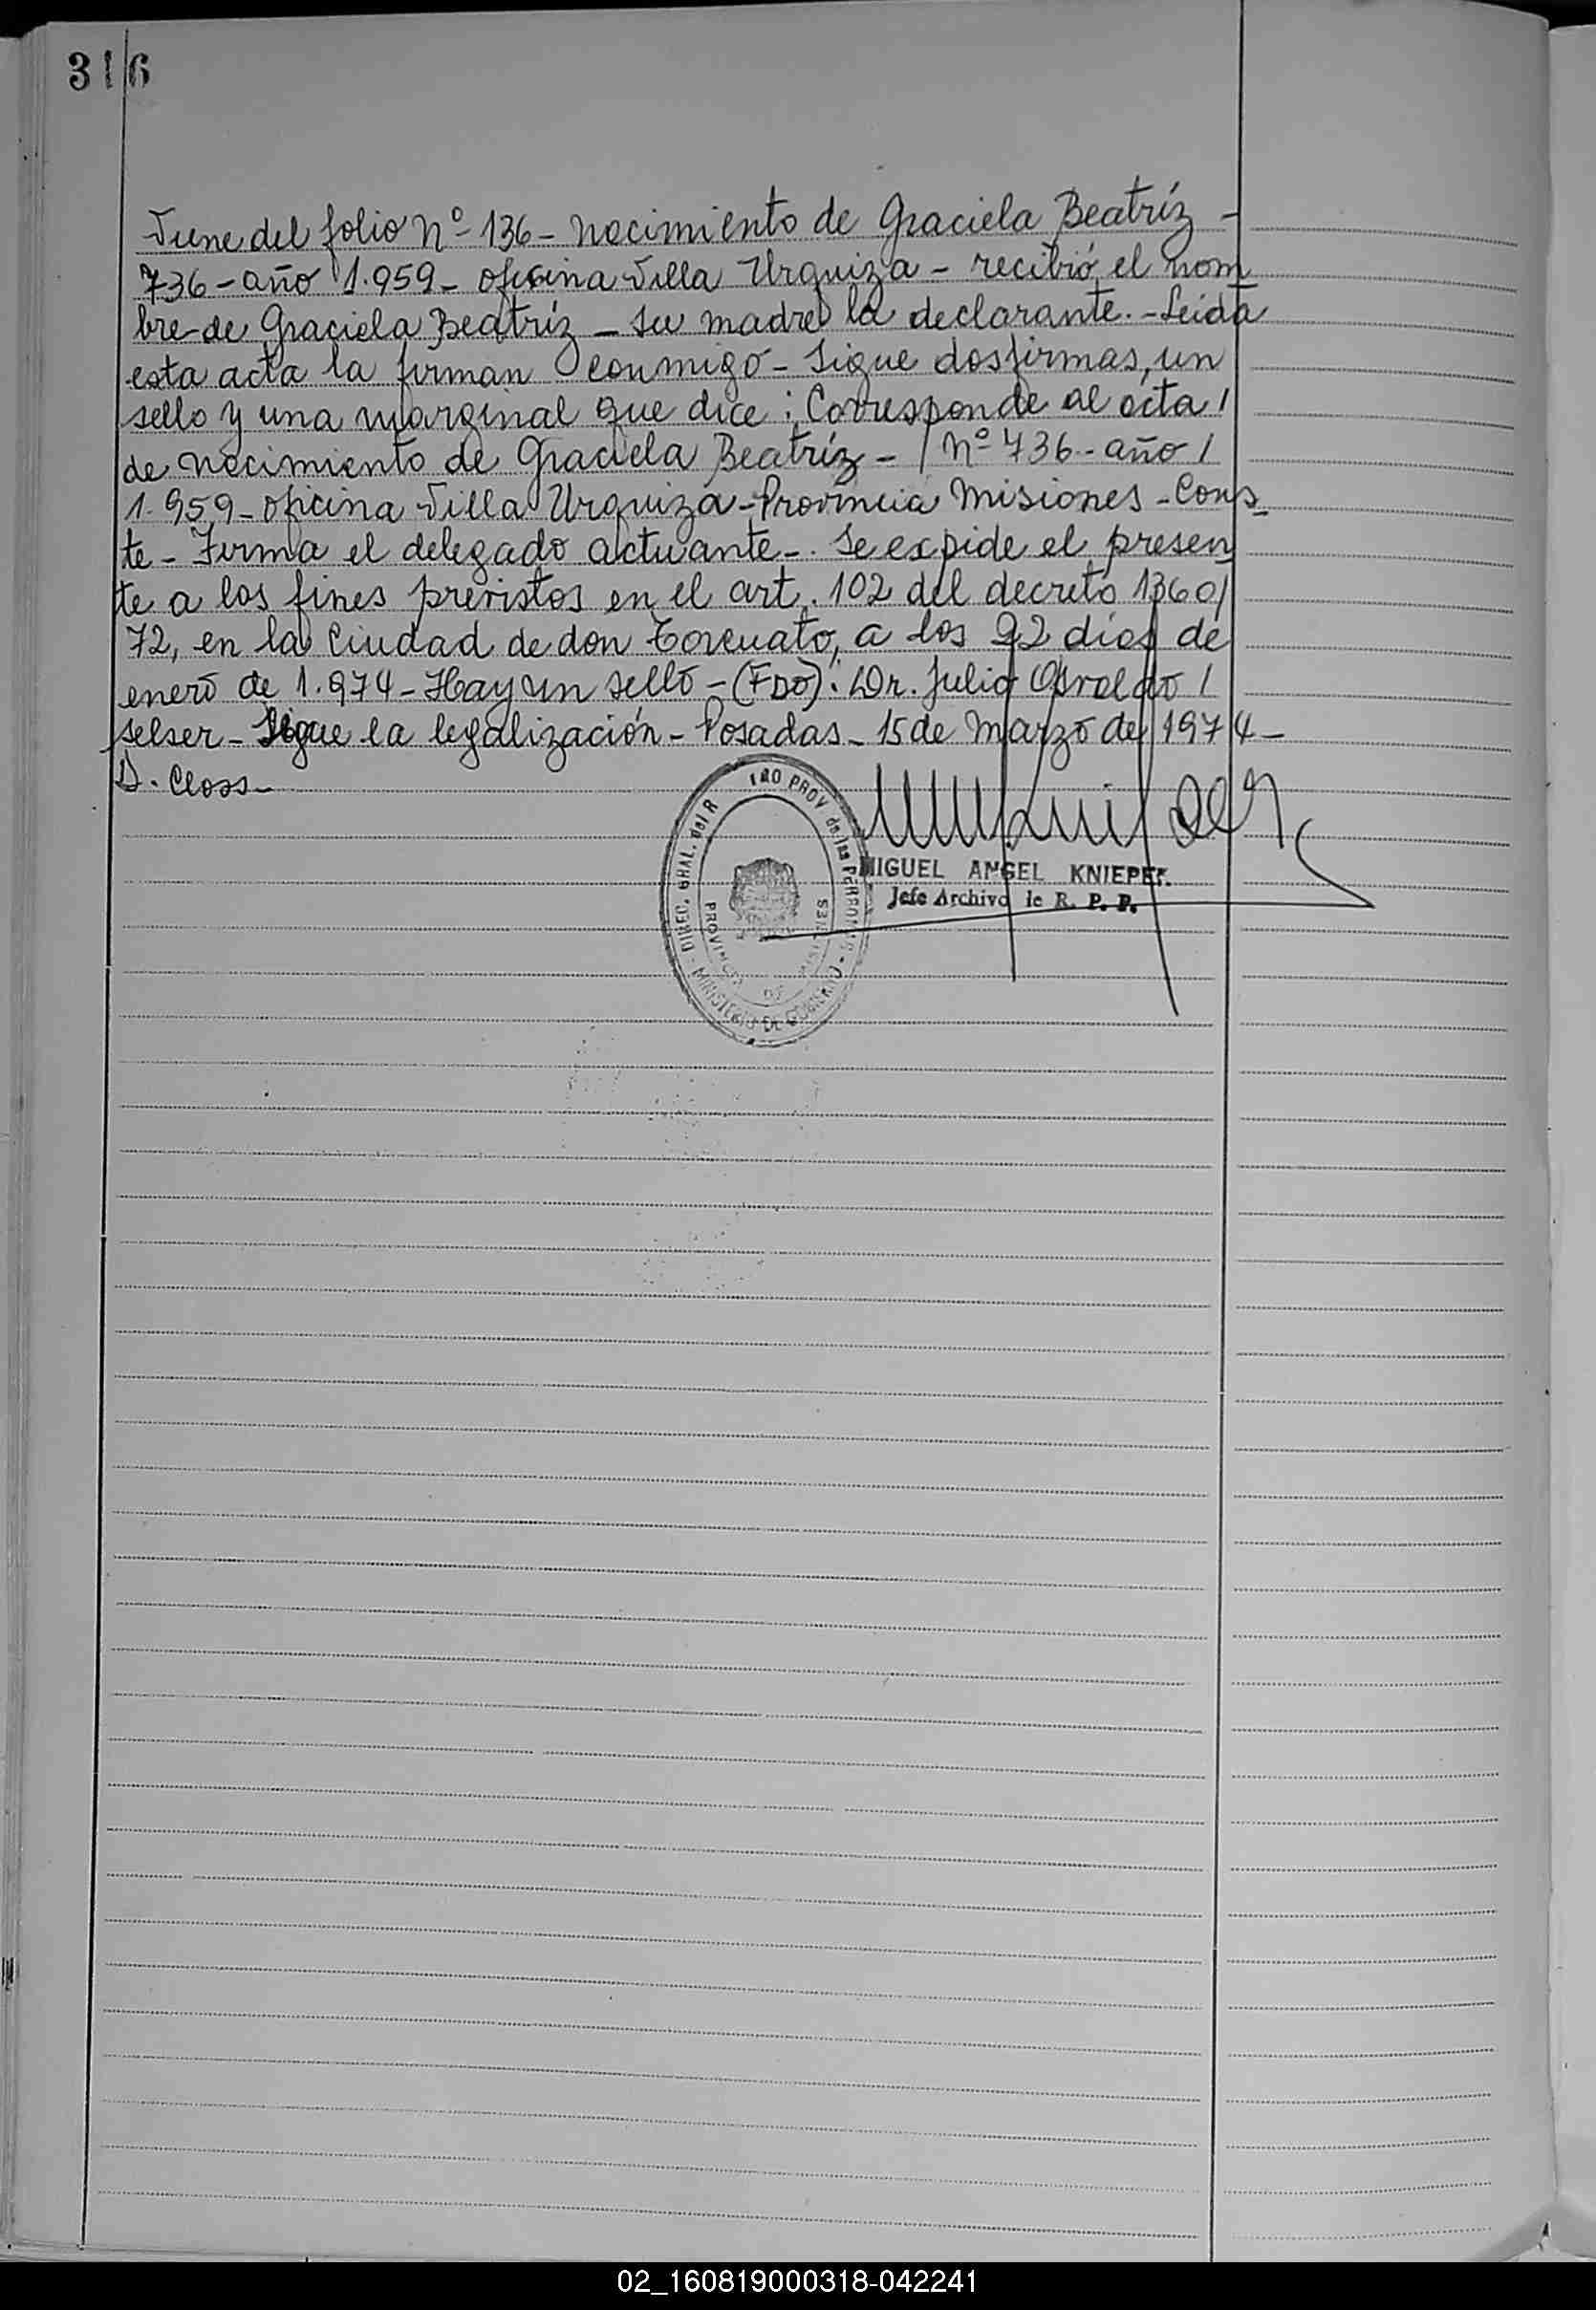 316
Viene del folio Nº 136 - Nacimiento de Graciela Beatríz -
736 - año 1.959 - oficina Villa Urquiza - recibió el nom
bre de Graciela Beatríz - Su madre la declarante. - Leída
esta acta la firman conmigo - Sigue dos firmas, un
sello y una marginal que dice: Corresponde al acta /
de nacimiento de Graciela Beatríz - / Nº 736 - año /
1.959 - oficina Villa Urquiza - Provincia Misiones - Cons
te - Firma el delegado actuante -. Se expide el presen
te a los fines previstos en el art. 102 del decreto 1360/
72, en la Ciudad de don Torcuato, a los 22 días de
enero de 1.974 - Hay un sello - (FDO): Dr. Julio Osvaldo /
Selser - Sigue la legalización - Posadas - 15 de Marzo de 1974 -
D. Closs -
DIREC. GRAL. del R PROV de las PERSONAS - MINISTERIO DE GOBIERNO
PROVINCIA DE MISIONES
MIGUEL ANGEL KNIEPER
Jefe Archivo de R. P. P.
02_160819000318-042241